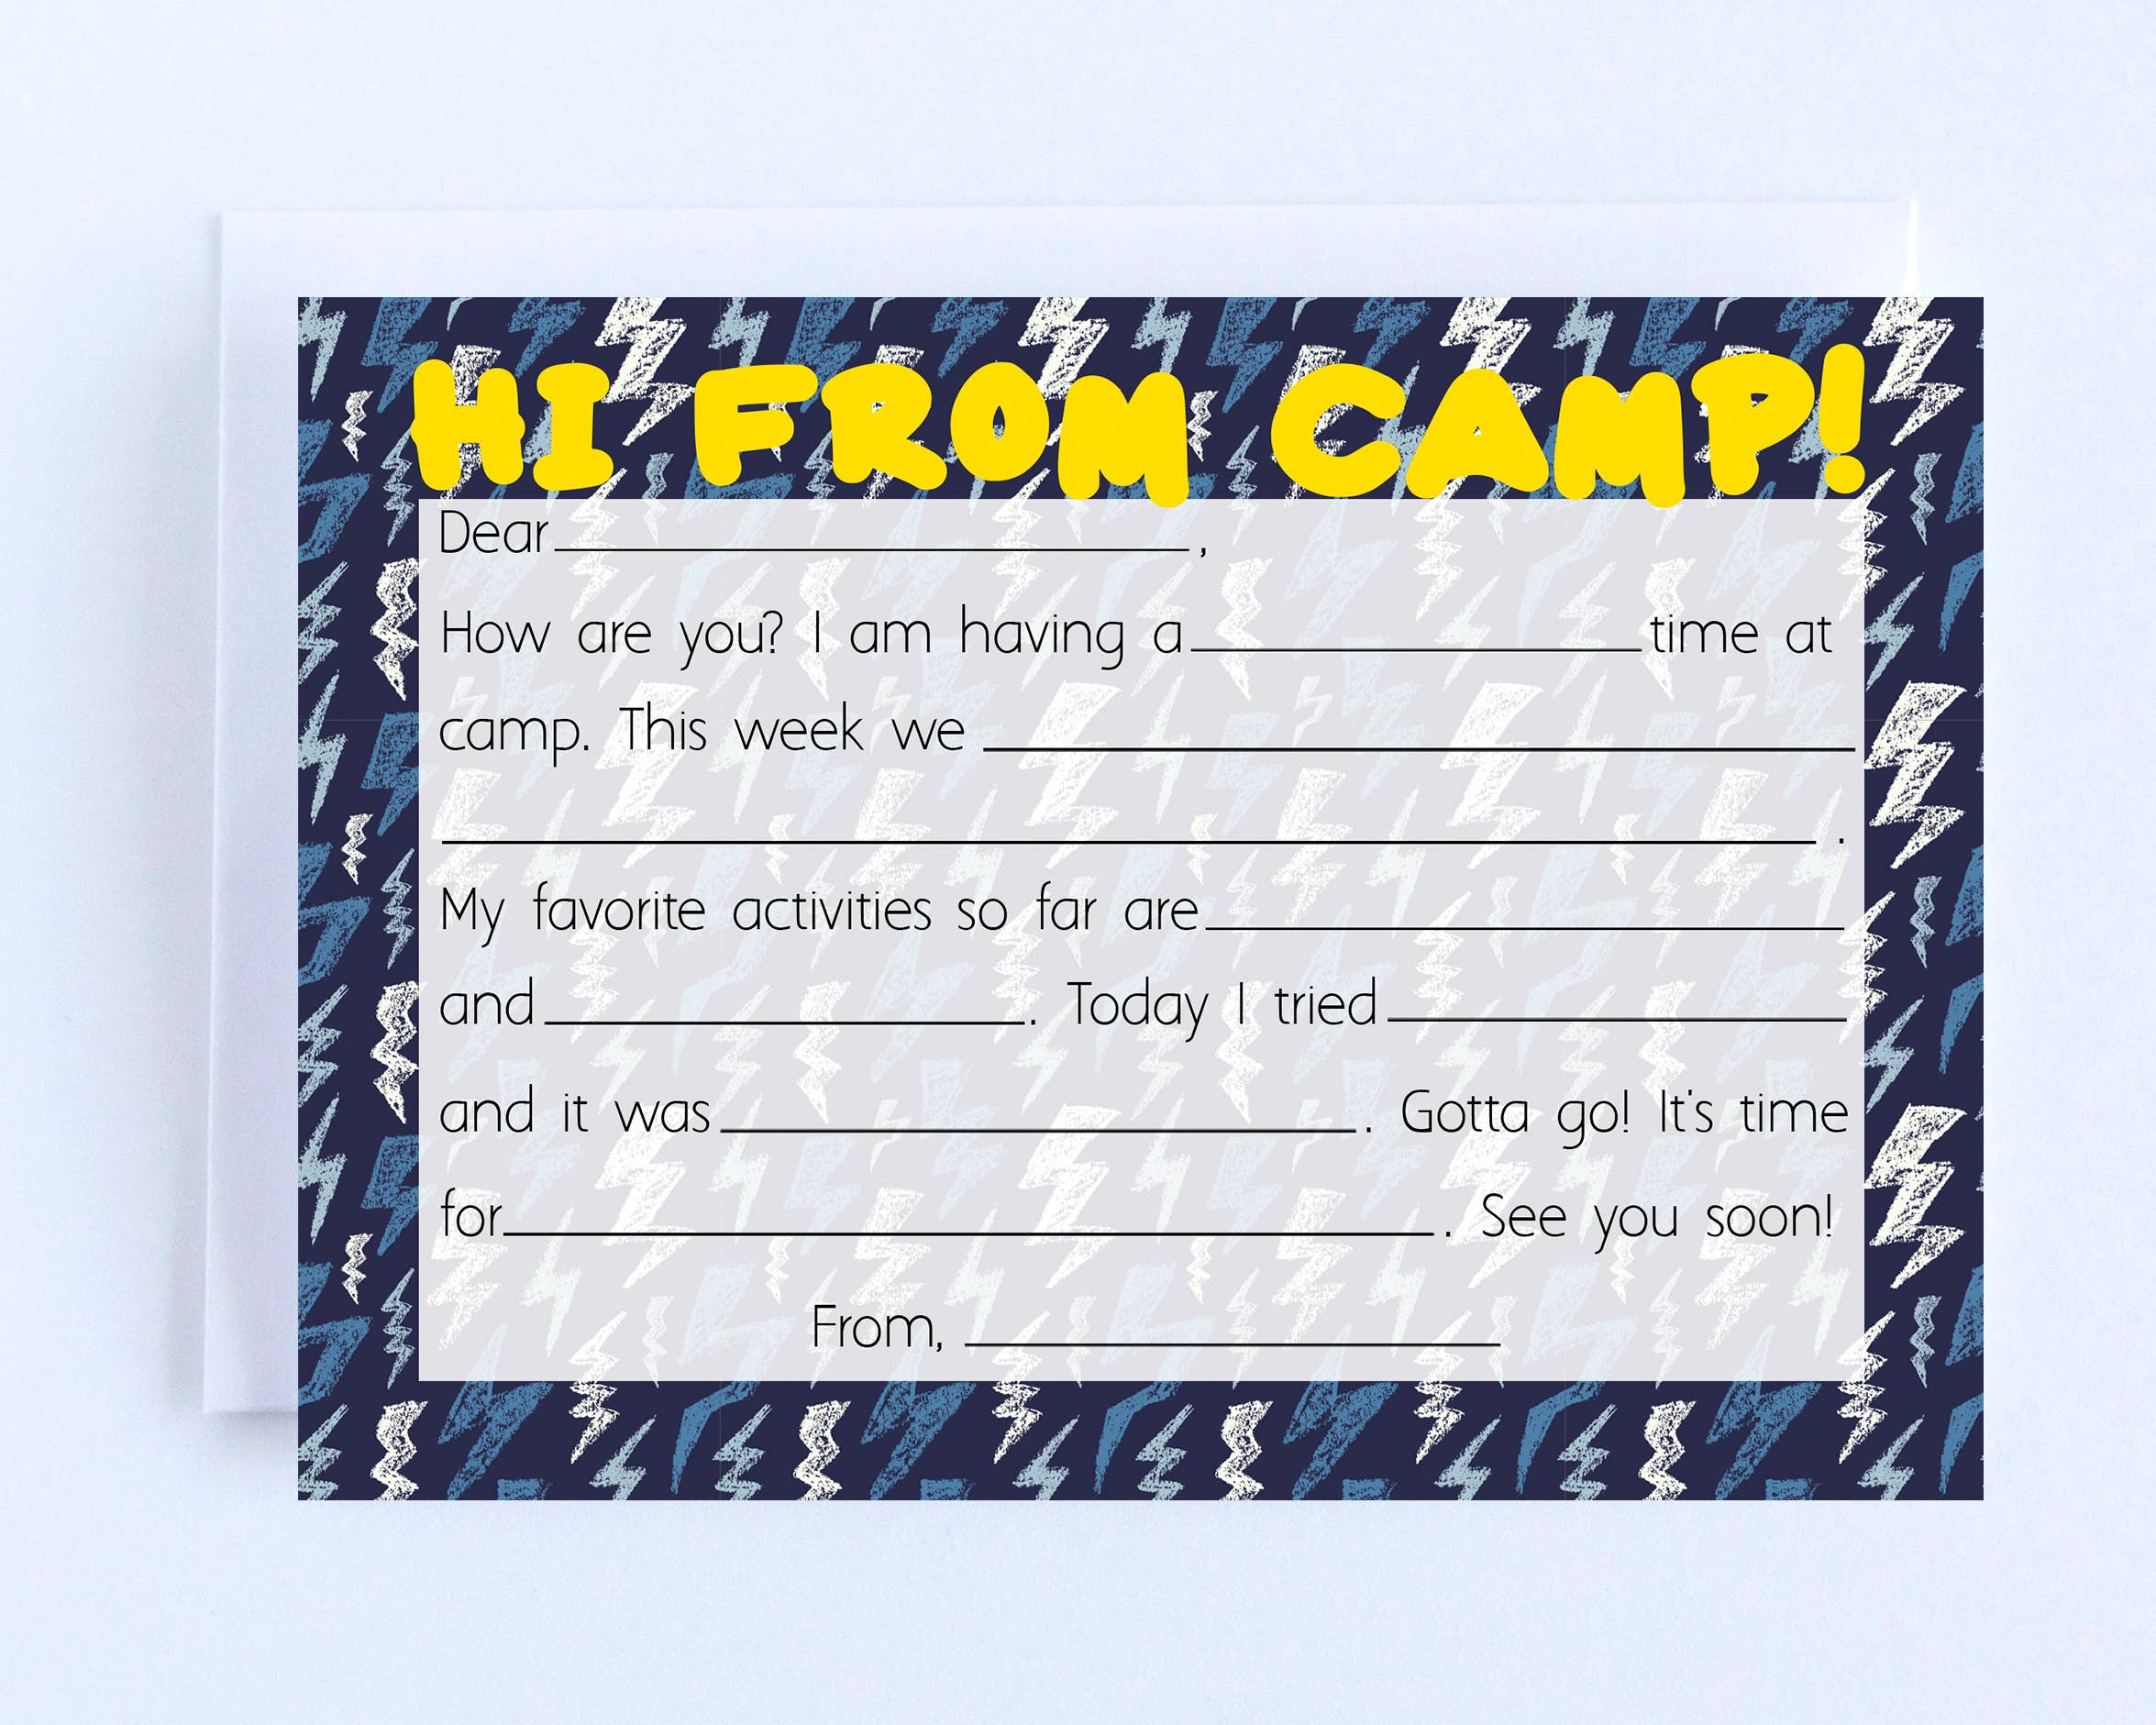 HI FROM CAMP!
Dear____________________,
How are you? I am having a______________time at
camp. This week we ___________________________
___________________________________________ .
My favorite activities so far are____________________
and_______________. Today I tried______________
and it was____________________. Gotta go! It's time
for_____________________________. See you soon!
From, _________________